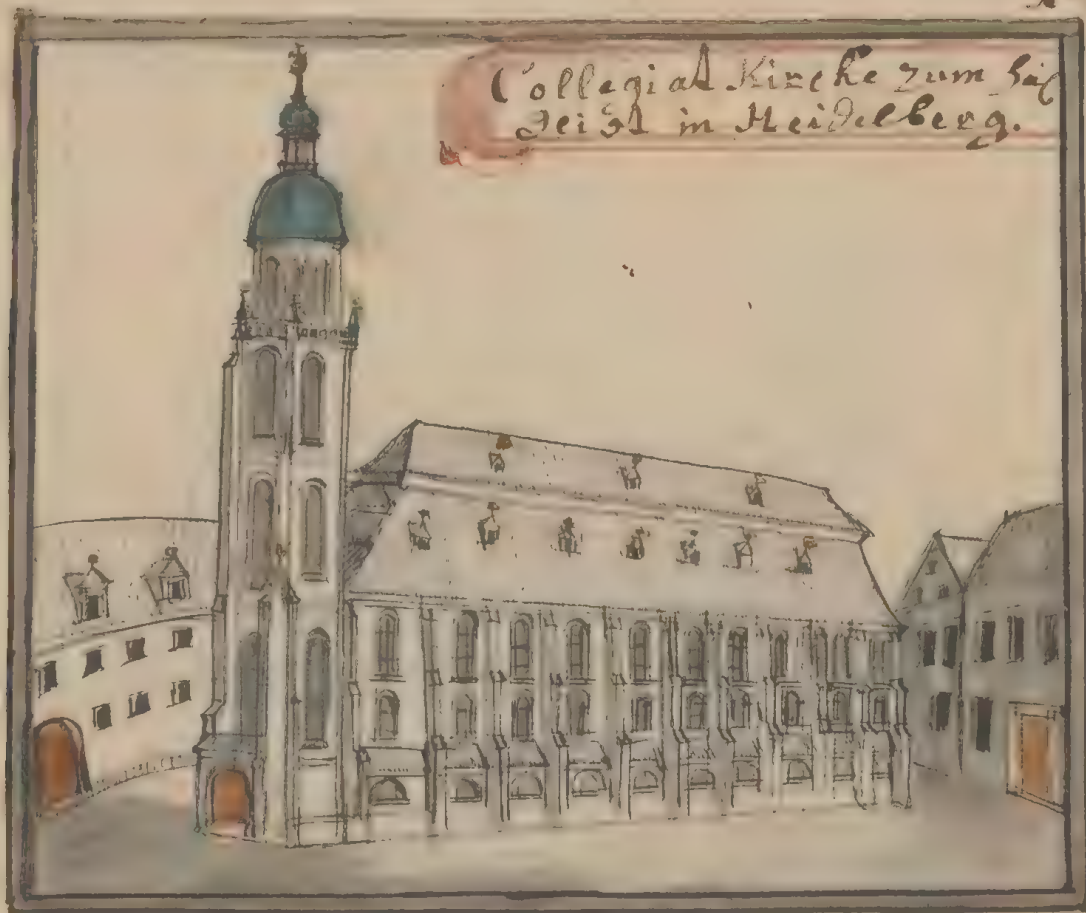 Collegiat Kirche zum heil
Geist in Heidelberg.